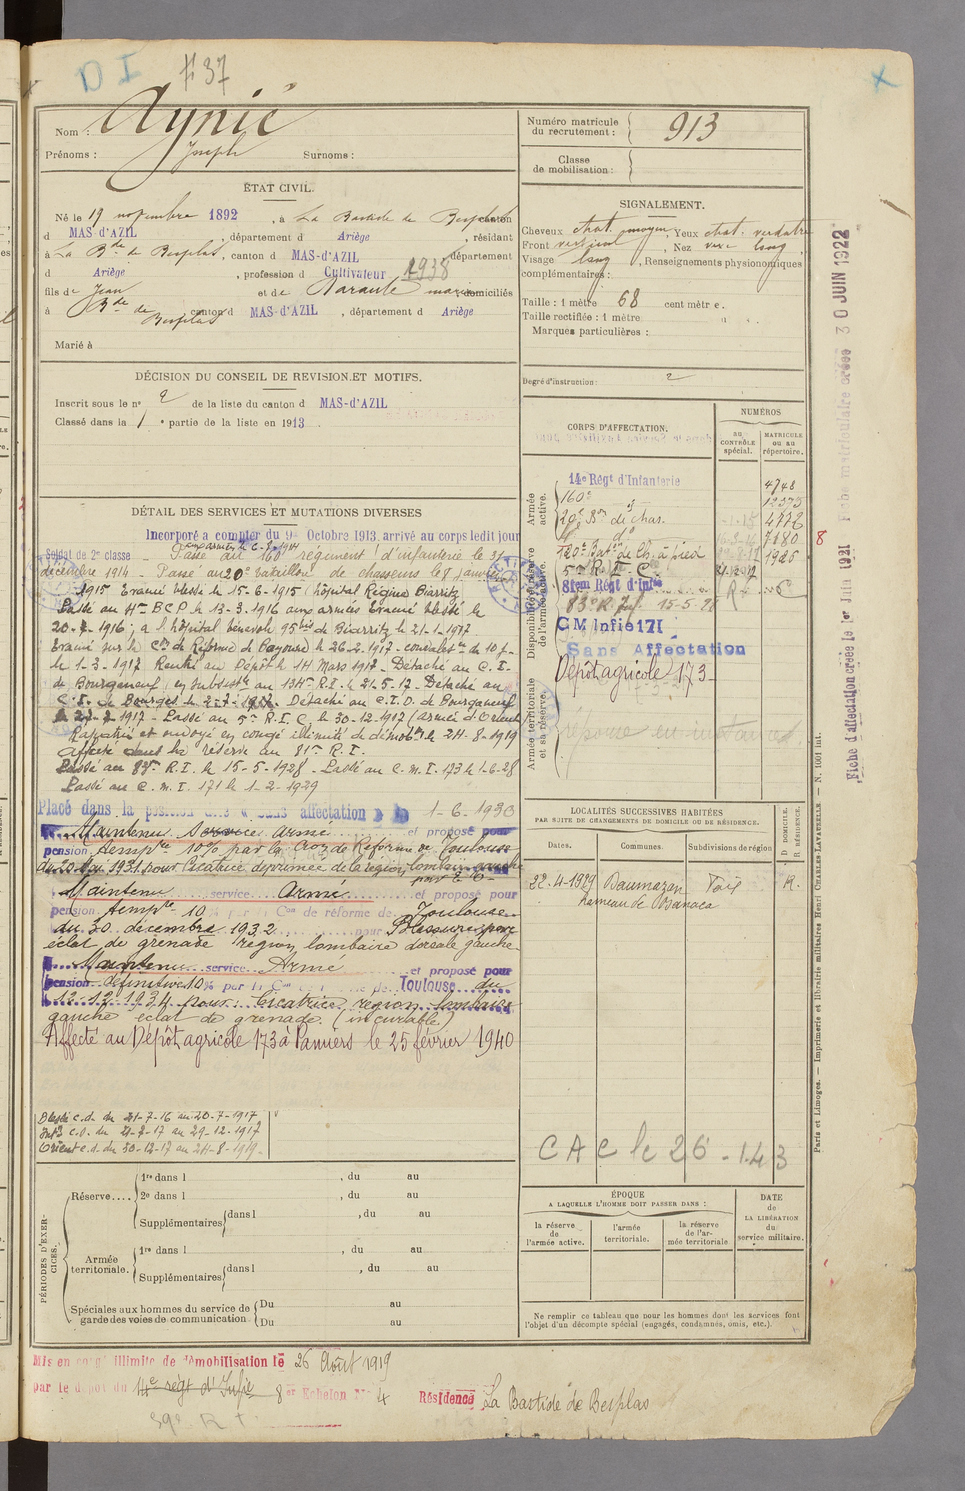 D I # 37
Nom : Aynié
Prénoms : Joseph Surnoms :
Numéro matricule du recrutement : 913
Classe de mobilisation :
ÉTAT CIVIL.
Né le 19 novembre 1892, à La Bastide de Besplas canton
d MAS-d'AZIL, département d Ariège, résidant
à La Bde de Besplas, canton d MAS-d'AZIL département
d Ariège, profession d Cultivateur 1938
fils de Jean et de Naraute Marie domiciliés
à Bde de Besplas canton d MAS-d'AZIL, département d Ariège
Marié à
SIGNALEMENT.
Cheveux chat. moyen Yeux chat. verdatre
Front vertical, Nez long
Visage long, Renseignements physionomiques
complémentaires :
Taille : 1 mètre 68 centimètre.
Taille rectifiée : 1 mètre
Marques particulières :
Degré d'instruction : 2
DÉCISION DU CONSEIL DE REVISION ET MOTIFS.
Inscrit sous le n° 2 de la liste du canton d MAS-d'AZIL
Classé dans la 1 e partie de la liste en 1913.
DÉTAIL DES SERVICES ET MUTATIONS DIVERSES
Incorporé a compter du 9 Octobre 1913, arrivé au corps ledit jour
aux armées le 6-8-1914
Soldat de 2e classe Passé au 160e régiment d'infanterie le 31
décembre 1914 - Passé au 20e bataillon de chasseurs le 8 janvier
1915 Evacué blessé le 15-6-1915 (hôpital Régina Biarritz
Passé au 4me BCP le 13-3-1916 aux armées Evacué blessé le
20-7-1916; a l'hôpital bénévole 95bis de Biarritz le 21-1-1917
Evacué sur le Cre de Réforme de Bayonne le 26-2-1917 - convalesce de 10 j-
le 1-3-1917 Rentré au Dépôt le 14 Mars 1917 - Détaché au C. I.
de Bourganeuf, en subsistce au 134me R.I. le 21-5-17 - Détaché au
C. I. de Bourges le 2-7-1917. Détaché au C.I.D. de Bourganeuf
le 21-7-1917 - Passé au 5me R.I.C. le 30-12-1917 (armée d'Orient)
Rapatrié et envoyé en congé illimité de démobon le 24-8-1919
affecté dans la réserve au 81me R.I.
Passé au 83me R.I. le 15-5-1928 - Passé au C.M.I. 173 le 1-6-28
Passé au C.M.I. 171 le 1-2-1929
Placé dans la position dite « sans affectation » 1-6-1930
Maintenu service armé et proposé pour
pension tempre 10% par la Con de Réforme de Toulouse
du 20 Mai 1931 pour Cicatrice déprimée de la région lombaire gauche
Maintenu service Armé et proposé pour
pension tempre 10 % par la Con de réforme de Toulouse
du 30 décembre 1932 pour Blessure par
éclat de grenade région lombaire dorsale gauche
Maintenu service Armé et proposé pour
pension définitive 10% par la Con de Toulouse du
12-12-1934 pour Cicatrice région lombaire
gauche éclat de grenade. (incurable)
Affecté au Dépôt agricole 173 à Pamiers le 25 février 1940
Blessé c.d. du 21-7-16 au 20-7-1917
Intr c.d. du 21-7-17 au 29-12-1917
Orient c.d. du 30-12-17 au 24-8-1919
CORPS D'AFFECTATION.
NUMÉROS
au CONTRÔLE spécial.
MATRICULE ou au répertoire.
Armée active.
Disponibilité et réserve de l'armée active.
Armée territoriale et sa réserve.
14e Régt d'Infanterie 4748
160e 12375
20e Bon de chas.
4e do 7180
120e Batn de Ch. à pied 1926
5me R.I.C. 31-12-17
81em Régt d'Infie
83e R. Inf. 15-5-28
CM Infie 171
Sans Affectation
Dépôt agricole 173
LOCALITÉS SUCCESSIVES HABITÉES
PAR SUITE DE CHANGEMENTS DE DOMICILE OU DE RÉSIDENCE.
Dates. Communes. Subdivisions de région D. DOMICILE. R. RÉSIDENCE.
22-4-1929 Daumazan Foix R.
hameau de Banaca
CAC le 26-1.43
PÉRIODES D'EXERCICES.
Réserve.... 1re dans l , du au
2e dans l , du au
Supplémentaires dans l , du au
Armée territoriale. 1re dans l , du au
Supplémentaires dans l , du au
Spéciales aux hommes du service de garde des voies de communication. Du au
Du au
ÉPOQUE
A LAQUELLE L'HOMME DOIT PASSER DANS :
la réserve de l'armée active. l'armée territoriale. la réserve de l'armée territoriale.
DATE de LA LIBÉRATION du service militaire.
Ne remplir ce tableau que pour les hommes dont les services font
l'objet d'un décompte spécial (engagés, condamnés, omis, etc.).
Mis en congé illimité de démobilisation le 26 Août 1919
par le dépôt du 14e régt d'Infie 8 er Echelon N° 4 Résidence La Bastide de Besplas
Paris et Limoges. — Imprimerie et librairie militaires Henri CHARLES-LAVAUZELLE — N. 1001 int.
Fiche d'affectation créée le 1er Juin 1921 Fiche matriculaire créée 30 JUIN 1922
8